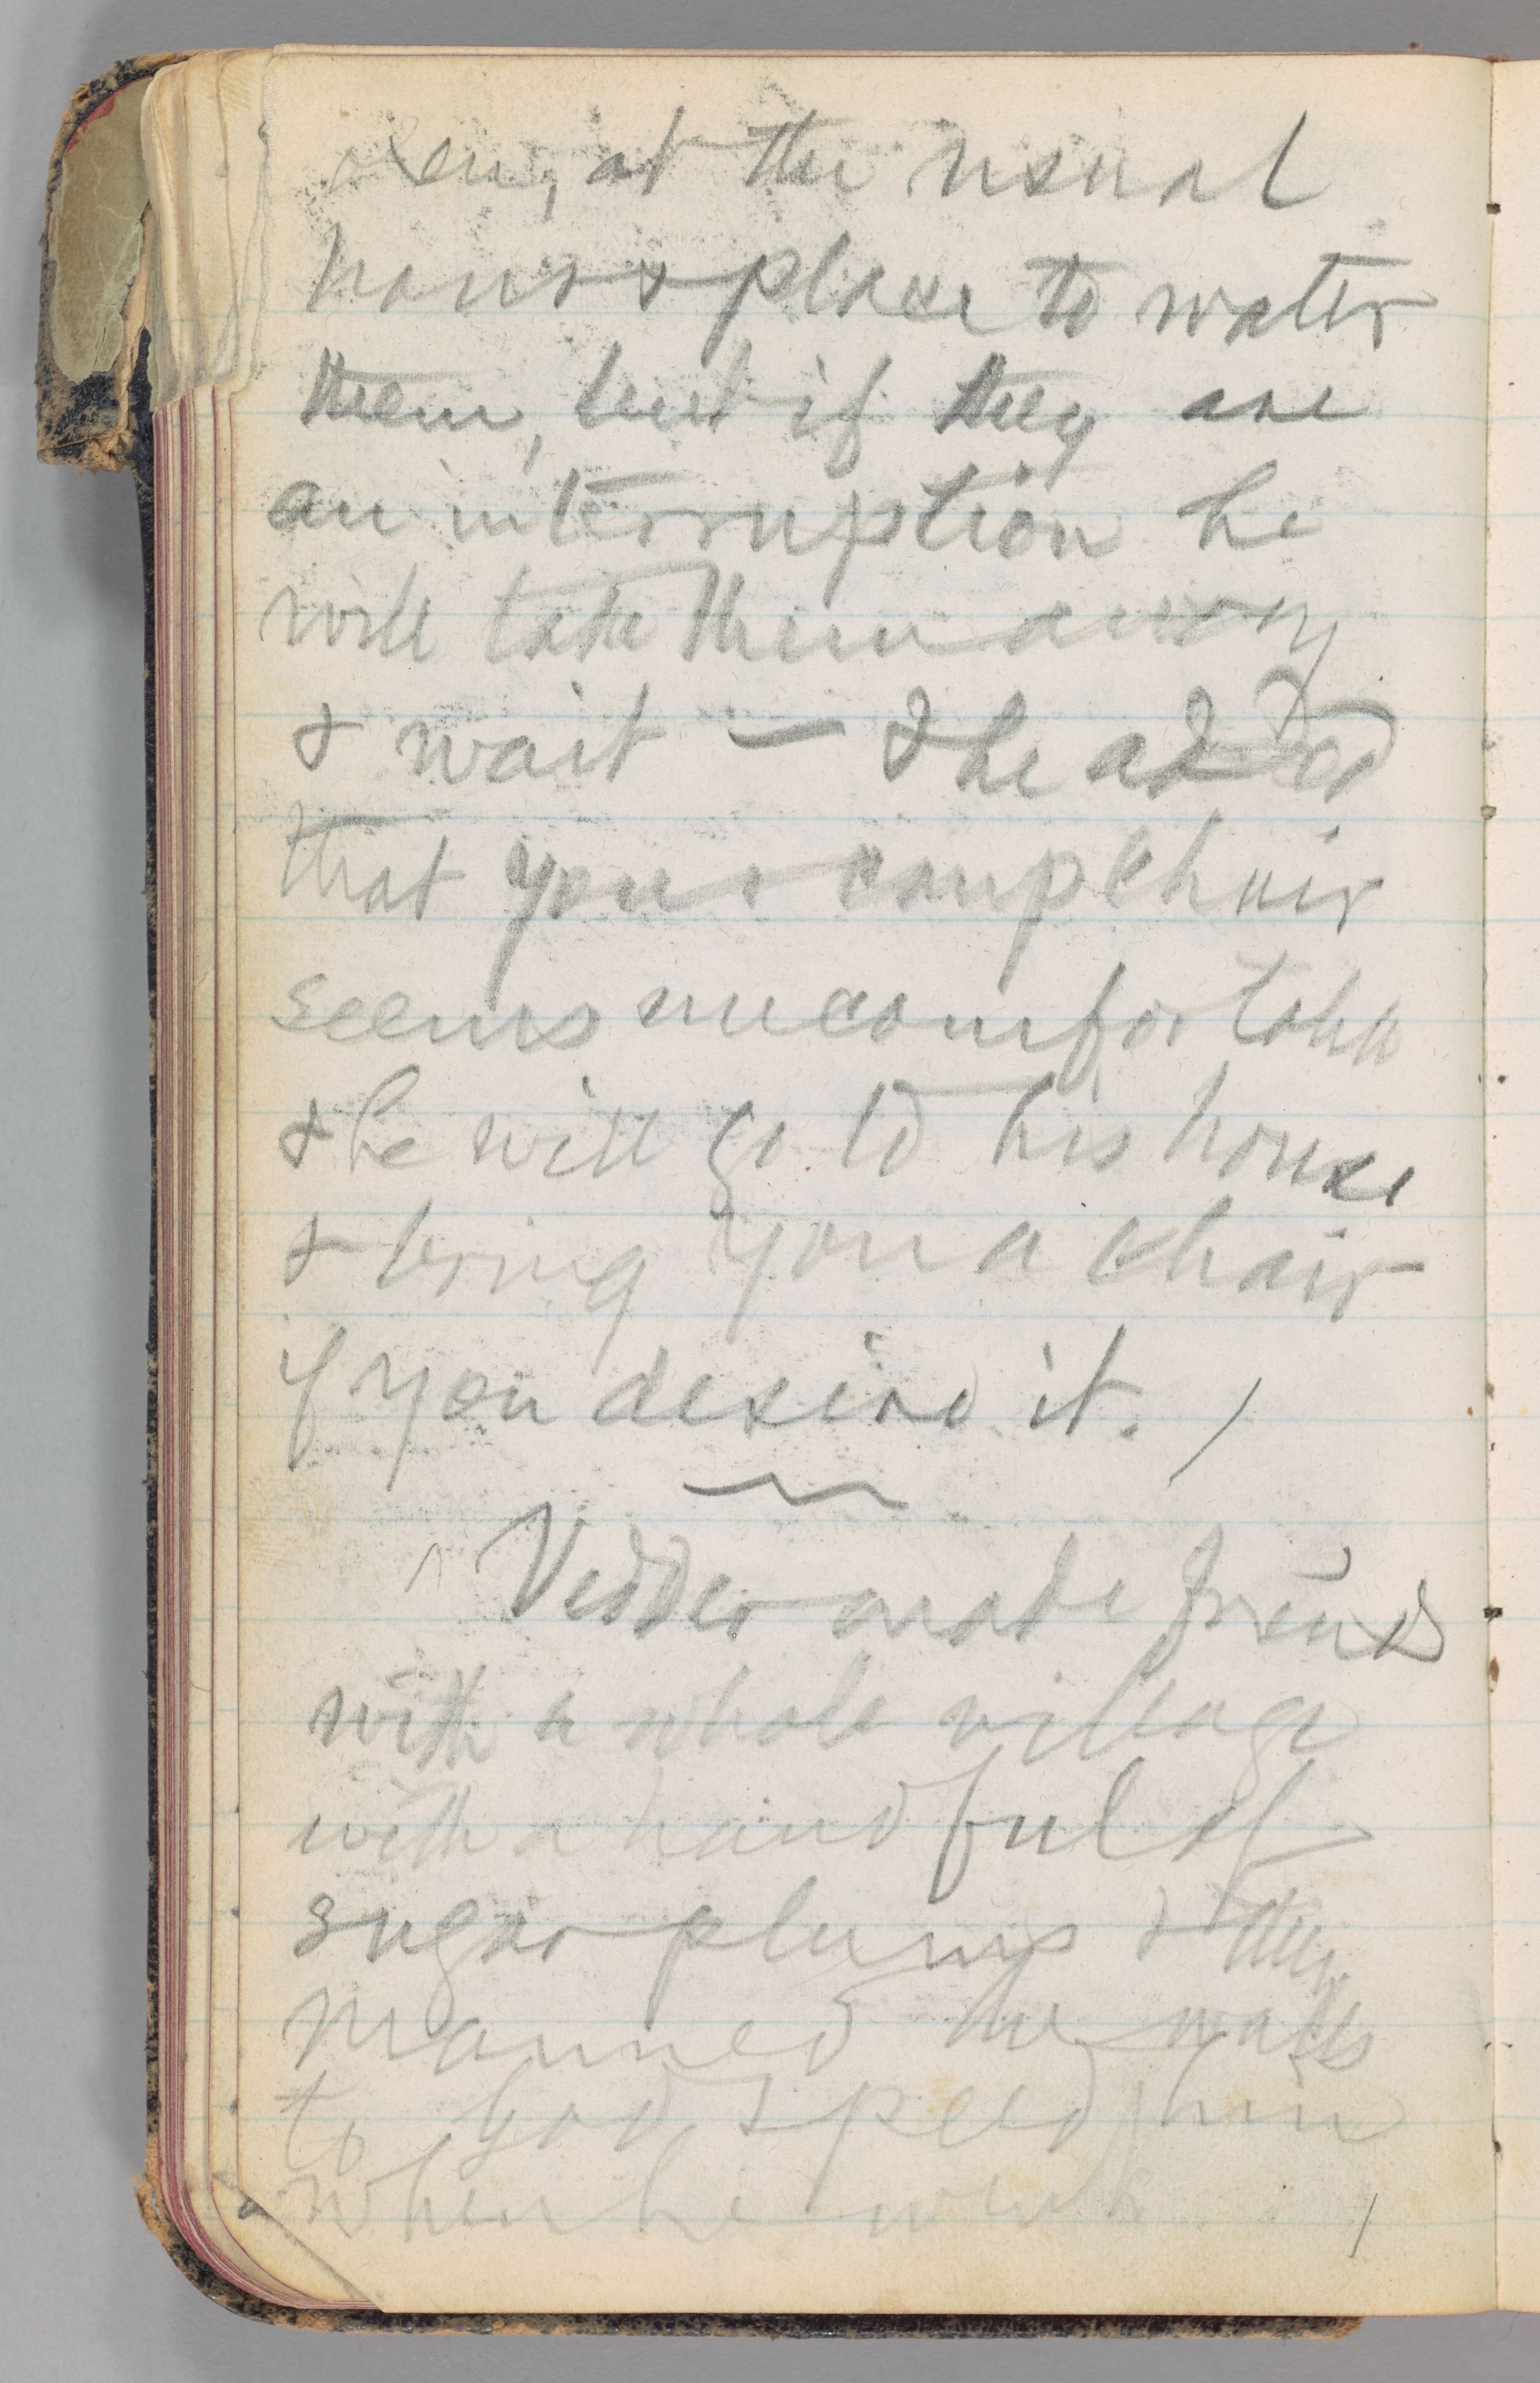 oxen, at the usual
hour & place to water
them, but if they are
an interruption he
will take them away
& wait — & he added
that your camp chair
seems uncomfortable
& he will go to his house
& bring you a chair
if you desire it. /
Vedder made friends
with a whole village
with a handful of
sugar plums & they
manned the walls
to God speed him
when he went /